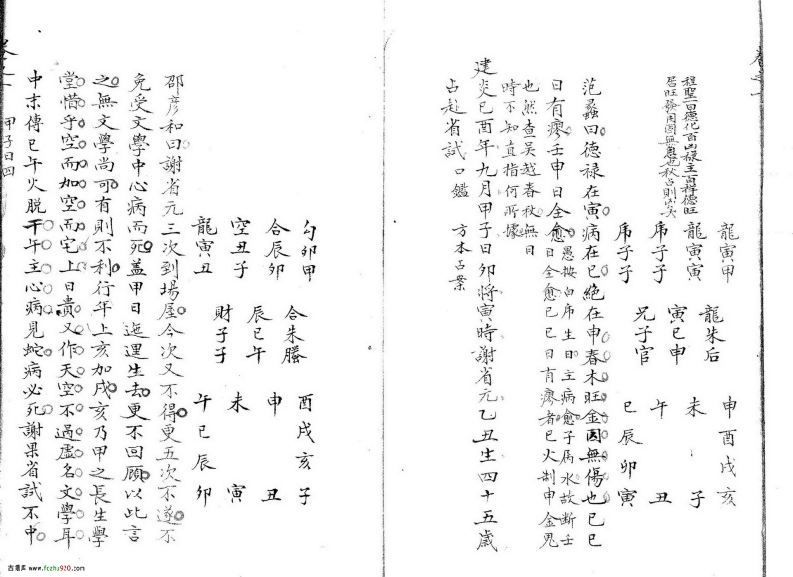 卷之一
程聖百德化百凶祿主百祥德旺
居旺發用固無慮也秋占則凶矣
龍寅甲
龍寅寅
虎子子
虎子子
龍朱后
寅巳申
兄子官
申酉戌亥
未 子
午 丑
巳辰卯寅
范蠡曰德祿在寅病在巳絕在申春木旺金囚無傷也己巳
日有瘳壬申日全愈
愚按白虎生日主病愈子屬水故斷壬
日全愈己巳日有瘳者巳火制申金鬼
也然查吳越春秋無日
時不知直指何所據
建炎己酉年九月甲子日卯將寅時謝省元乙丑生四十五歲
占赴省試 口鑑 方本占業
勾卯甲
合辰卯
空丑子
龍寅丑
合朱螣
辰巳午
財子子
酉戌亥子
申 丑
未 寅
午巳辰卯
邵彥和曰謝省元三次到場屋今次又不得更五次不遂不
免受文學中心病而死蓋甲日迤邐生去更不回顧以此言
之無文學尚可有則不利行年上亥加戌亥乃甲之長生學
堂惜乎空而加空而宅上日貴又作天空不過虛名文學耳
中末傳巳午火脫干午主心病見蛇病必死謝果省試不中
卷之一
甲子日四
古籍库 www.fczhu920.com